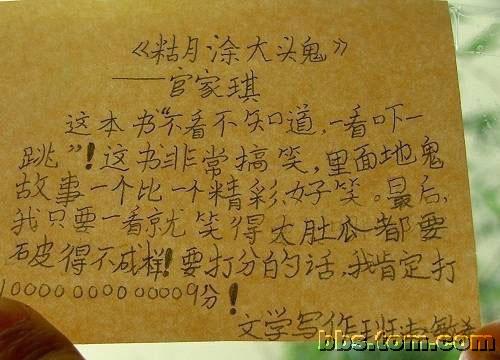 《糊涂大头鬼》
——官家琪
这本书“不看不知道,一看吓一
跳”!这书非常搞笑,里面地鬼
故事一个比一个精彩、好笑。最后,
我只要一看就笑得大肚瓜都要
破得不成样!要打分的话,我肯定打
10000000000009分!
文学写作班
bbs.tom.com